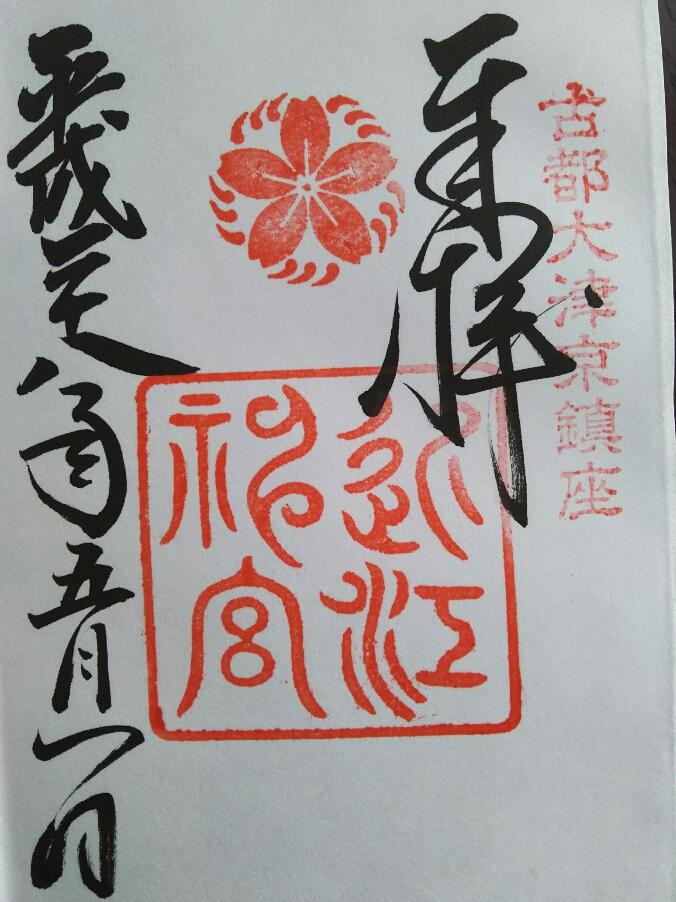 古都大津京鎮座
奉拝
近江
神宮
平成二十八年五月一日